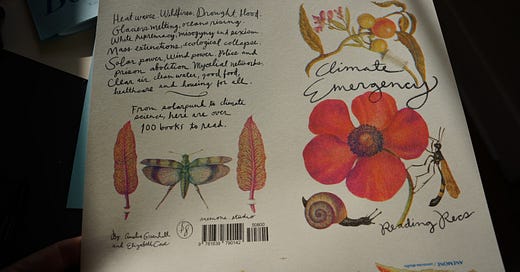 Heat waves. Wildfires. Drought. Flood.
Glaciers melting, oceans rising.
White supremacy, misogyny and fascism.
Mass extinctions, ecological collapse.
Solar power, wind power. Police and
prison abolition. Mycelial networks.
Clear air, clean water, good food,
healthcare and housing for all.
From solarpunk to climate
science, here are over
100 books to read.
By: Amelia Greenhall
and Elizabeth Case
$8
anemone studio
50800
9 781838 790142
Climate
Emergency
Reading Recs
ANEMONE